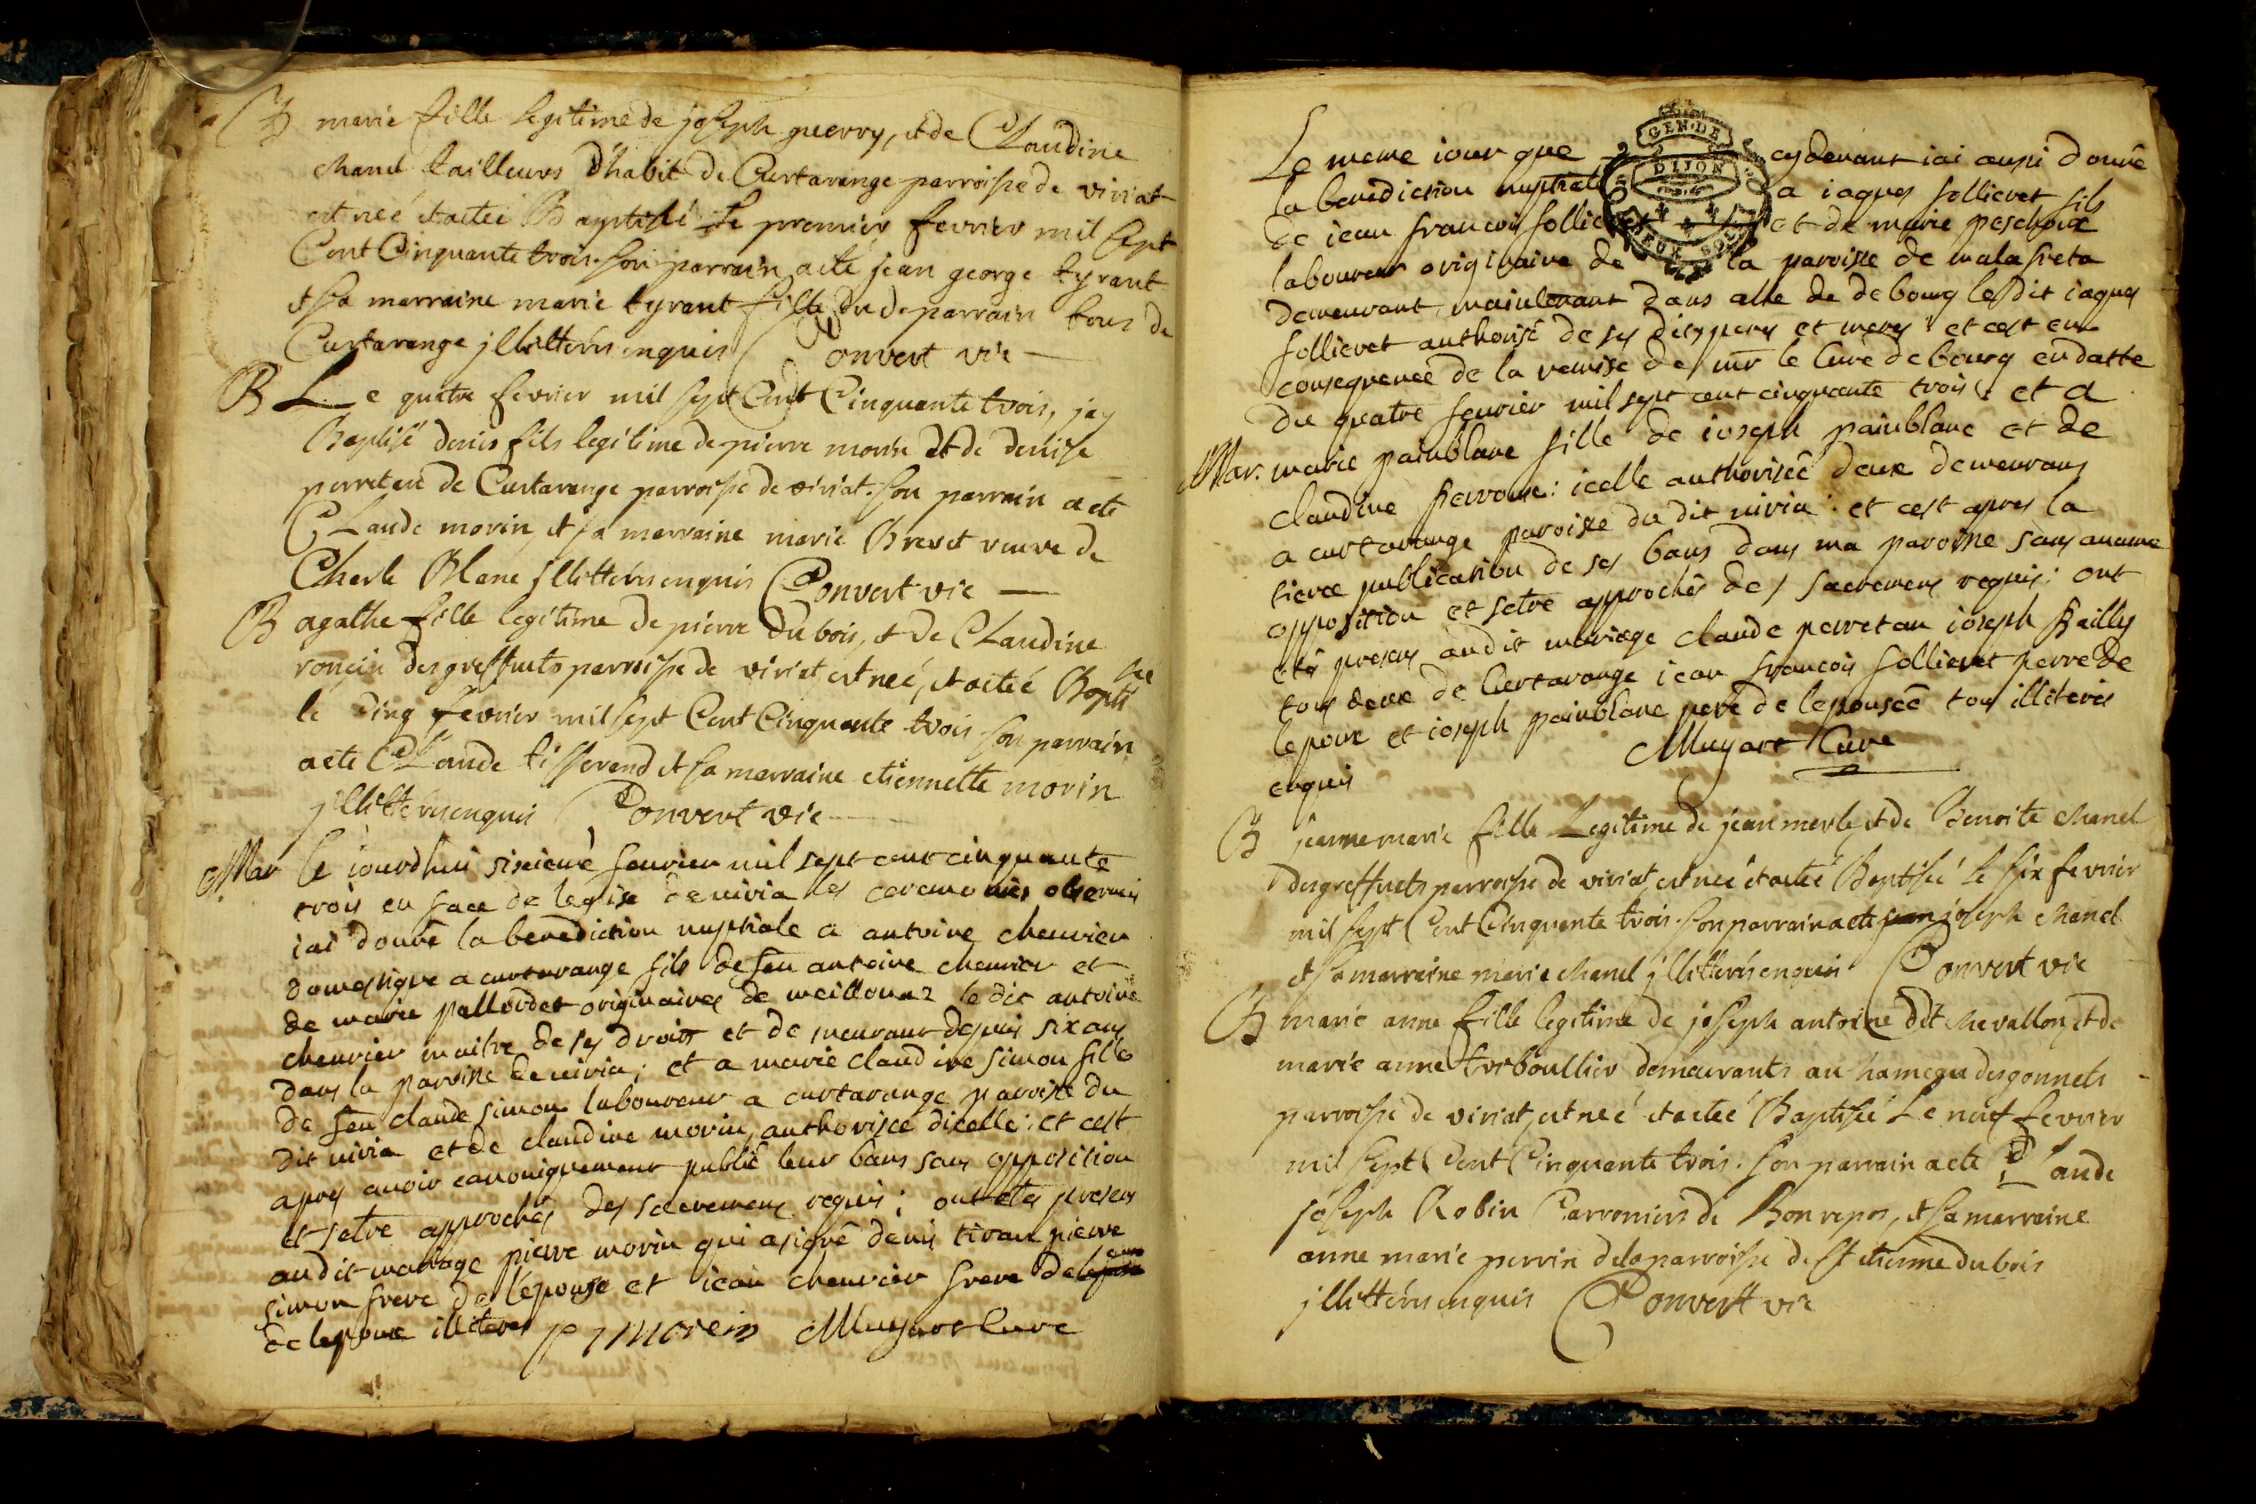 B marie fille legitime de joseph guerry, et de Claudine
chanel tailleurs d'habit de Curtarange parroisse de viriat
est neé et a eteé Baptiseé le premier fevrier mil sept
Cent Cinquante trois. son parrain a eté jean george tyrant
et sa marraine marie tyrant fille du d. parrain tous de
Curtarange jllitterés enquis Convert vic
B Le quatre fevrier mil sept Cent Cinquante trois, jay
Baptisé denis fils legitime de pierre morin et de denise
perretan de Curtarange parroisse de viriat. son parrain a eté
Claude morin, et sa marraine marie Brevet veuve de
Charle Blanc jllitterés enquis Convert vic
B agathe fille legitime de pierre Dubois, et de Claudine
ronjin des greffets parroisse de viriat, est neé, et a eteé Baptisee
le Cinq fevrier mil sept Cent Cinquante trois son parrain
a eté Claude tisserand et sa marraine etiennette morin
jllitterés enquis Convert vic
Mar le iourdhui sixieme feurier mil sept cent cinquante
trois en face de legise de uiria les ceremonies obseruées
iai donné la benediction nuptiale a antoine cheurier
domestique a curtarange fils de feu antoine cheurier et
de marie pallordet originaires de meillonaz le dit antoine
cheurier maitre de ses droits et demeurant depuis six ans
dans la paroisse de uiria; et a marie claudine simon fille
de feu claude simon laboureur a curtarange paroisse du
dit uiria et de claudine morin, authorisée dicelle: et cest
apres auoir canoniquement publié leur bans sans opposition
et setre approchés des sacremens requis; ont etés presens
audit mariage pierre morin qui a signé denis tiran pierre
simon frere de lépouse et iean cheurier frere
de lepoux illiteres P morein Muyart Cure
Le meme iour que cy devant iai aussi donné
la benediction nuptiale a iaques sollieret fils
de iean francois sollieret et de marie peschoux
laboureur originaire de la paroisse de malafreta
demeurant maintenant dans celle de de bourg le dit iaques
sollieret authorisé de ses dits peres et meres et cest en
consequence de la remise de mr le Curé de bourg en datte
du quatre feurier mil sept cent cinquante trois: et a
Mar. marie painblanc fille de ioseph painblanc et de
claudine perroux: icelle authorisée deux demeurans
a curtarange paroisse du dit uiria: et cest apres la
tierce publication de ses bans dans ma paroisse sans aucune
opposition et setre approchés des sacremens requis: ont
etés presens audit mariage claude perretan ioseph bailly
tous deux de Curtarange iean francois sollieret perre de
lepoux et ioseph painblanc pere de lepousée tous illiterés
enquis Muyart Cure
B jeanne marie fille Legitime de jean merle, et de Benoite chanel
des greffets parroisse de viriat, est neé et a eteé Baptiseé le six fevrier
mil sept Cent Cinquante trois. son parrain a eté jean joseph chanel
et sa marraine marie chanel jllitterés enquis Convert vic
B marie anne fille legitime de joseph antoine dit chevallon, et de
marie anne triboullier demeurants au hameau des gonnets
parroisse de viriat, est neé et a eteé Baptiseé Le neuf fevrier
mil sept Cent Cinquante trois. son parrain a eté Claude
joseph Robin Carronnier de Bonrepos, et sa marraine
anne marie perrin de la parroisse de St etienne du bois
jllitterés enquis Convert vic
GEN. DE
DIJON
DEUX SOLS